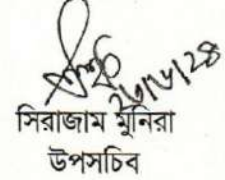 সিরাজাম মুনিরা
উপসচিব